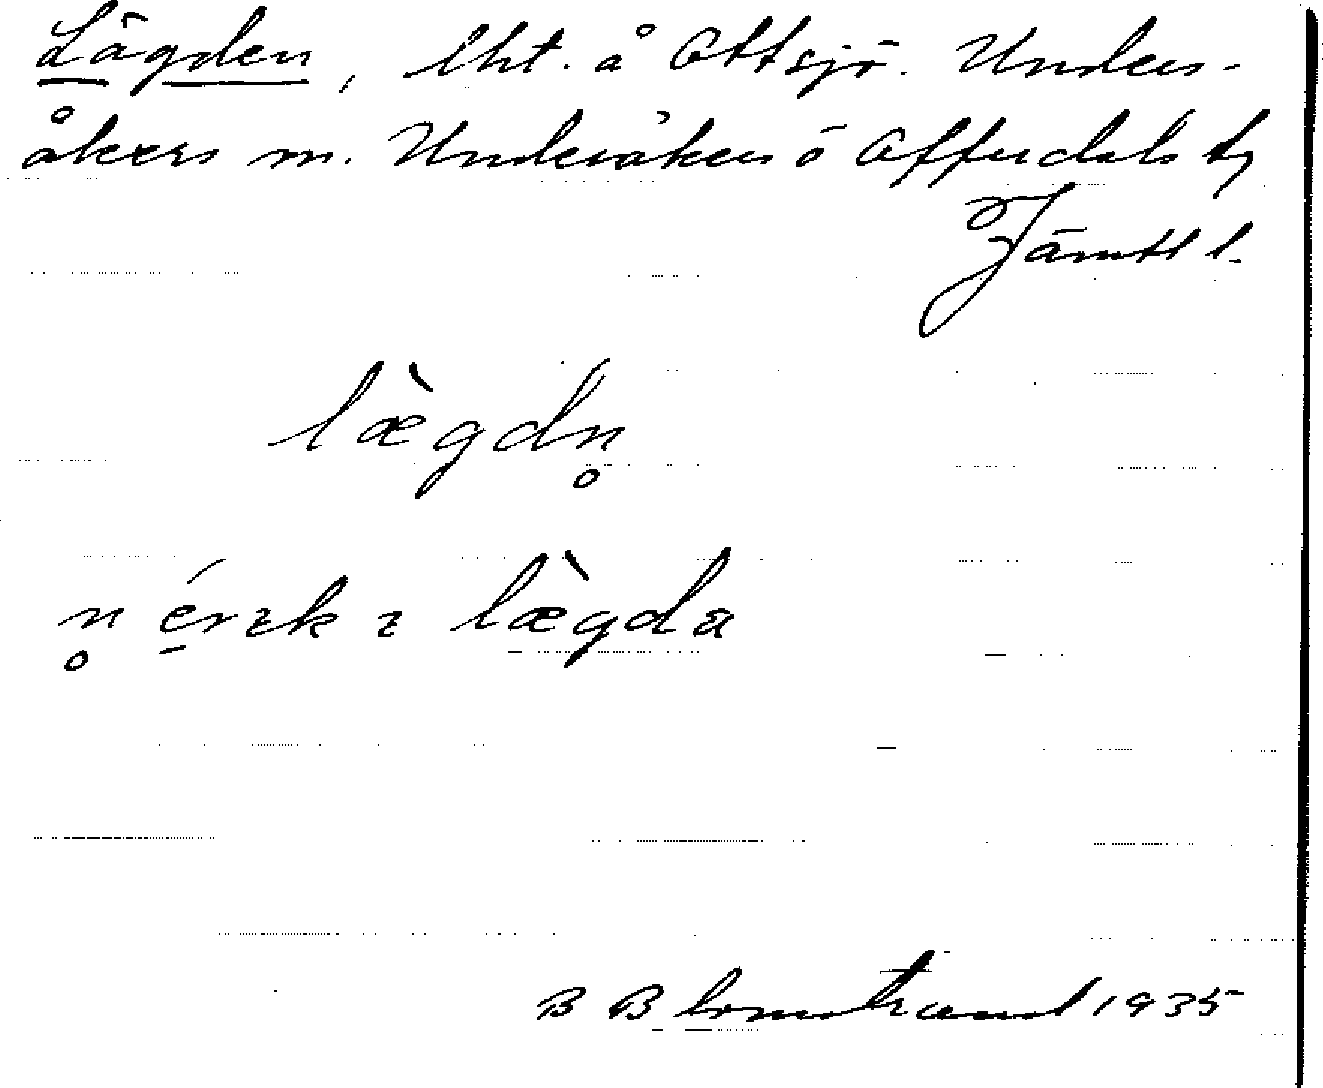 Lägden, lht. å Ottsjö. Unders-
åkers sn. Undersåkers o Offerdals tg
Jämtl l.
lὰgdn̥
n̥ érɪk ɪ lægda
B Blomstrand 1935